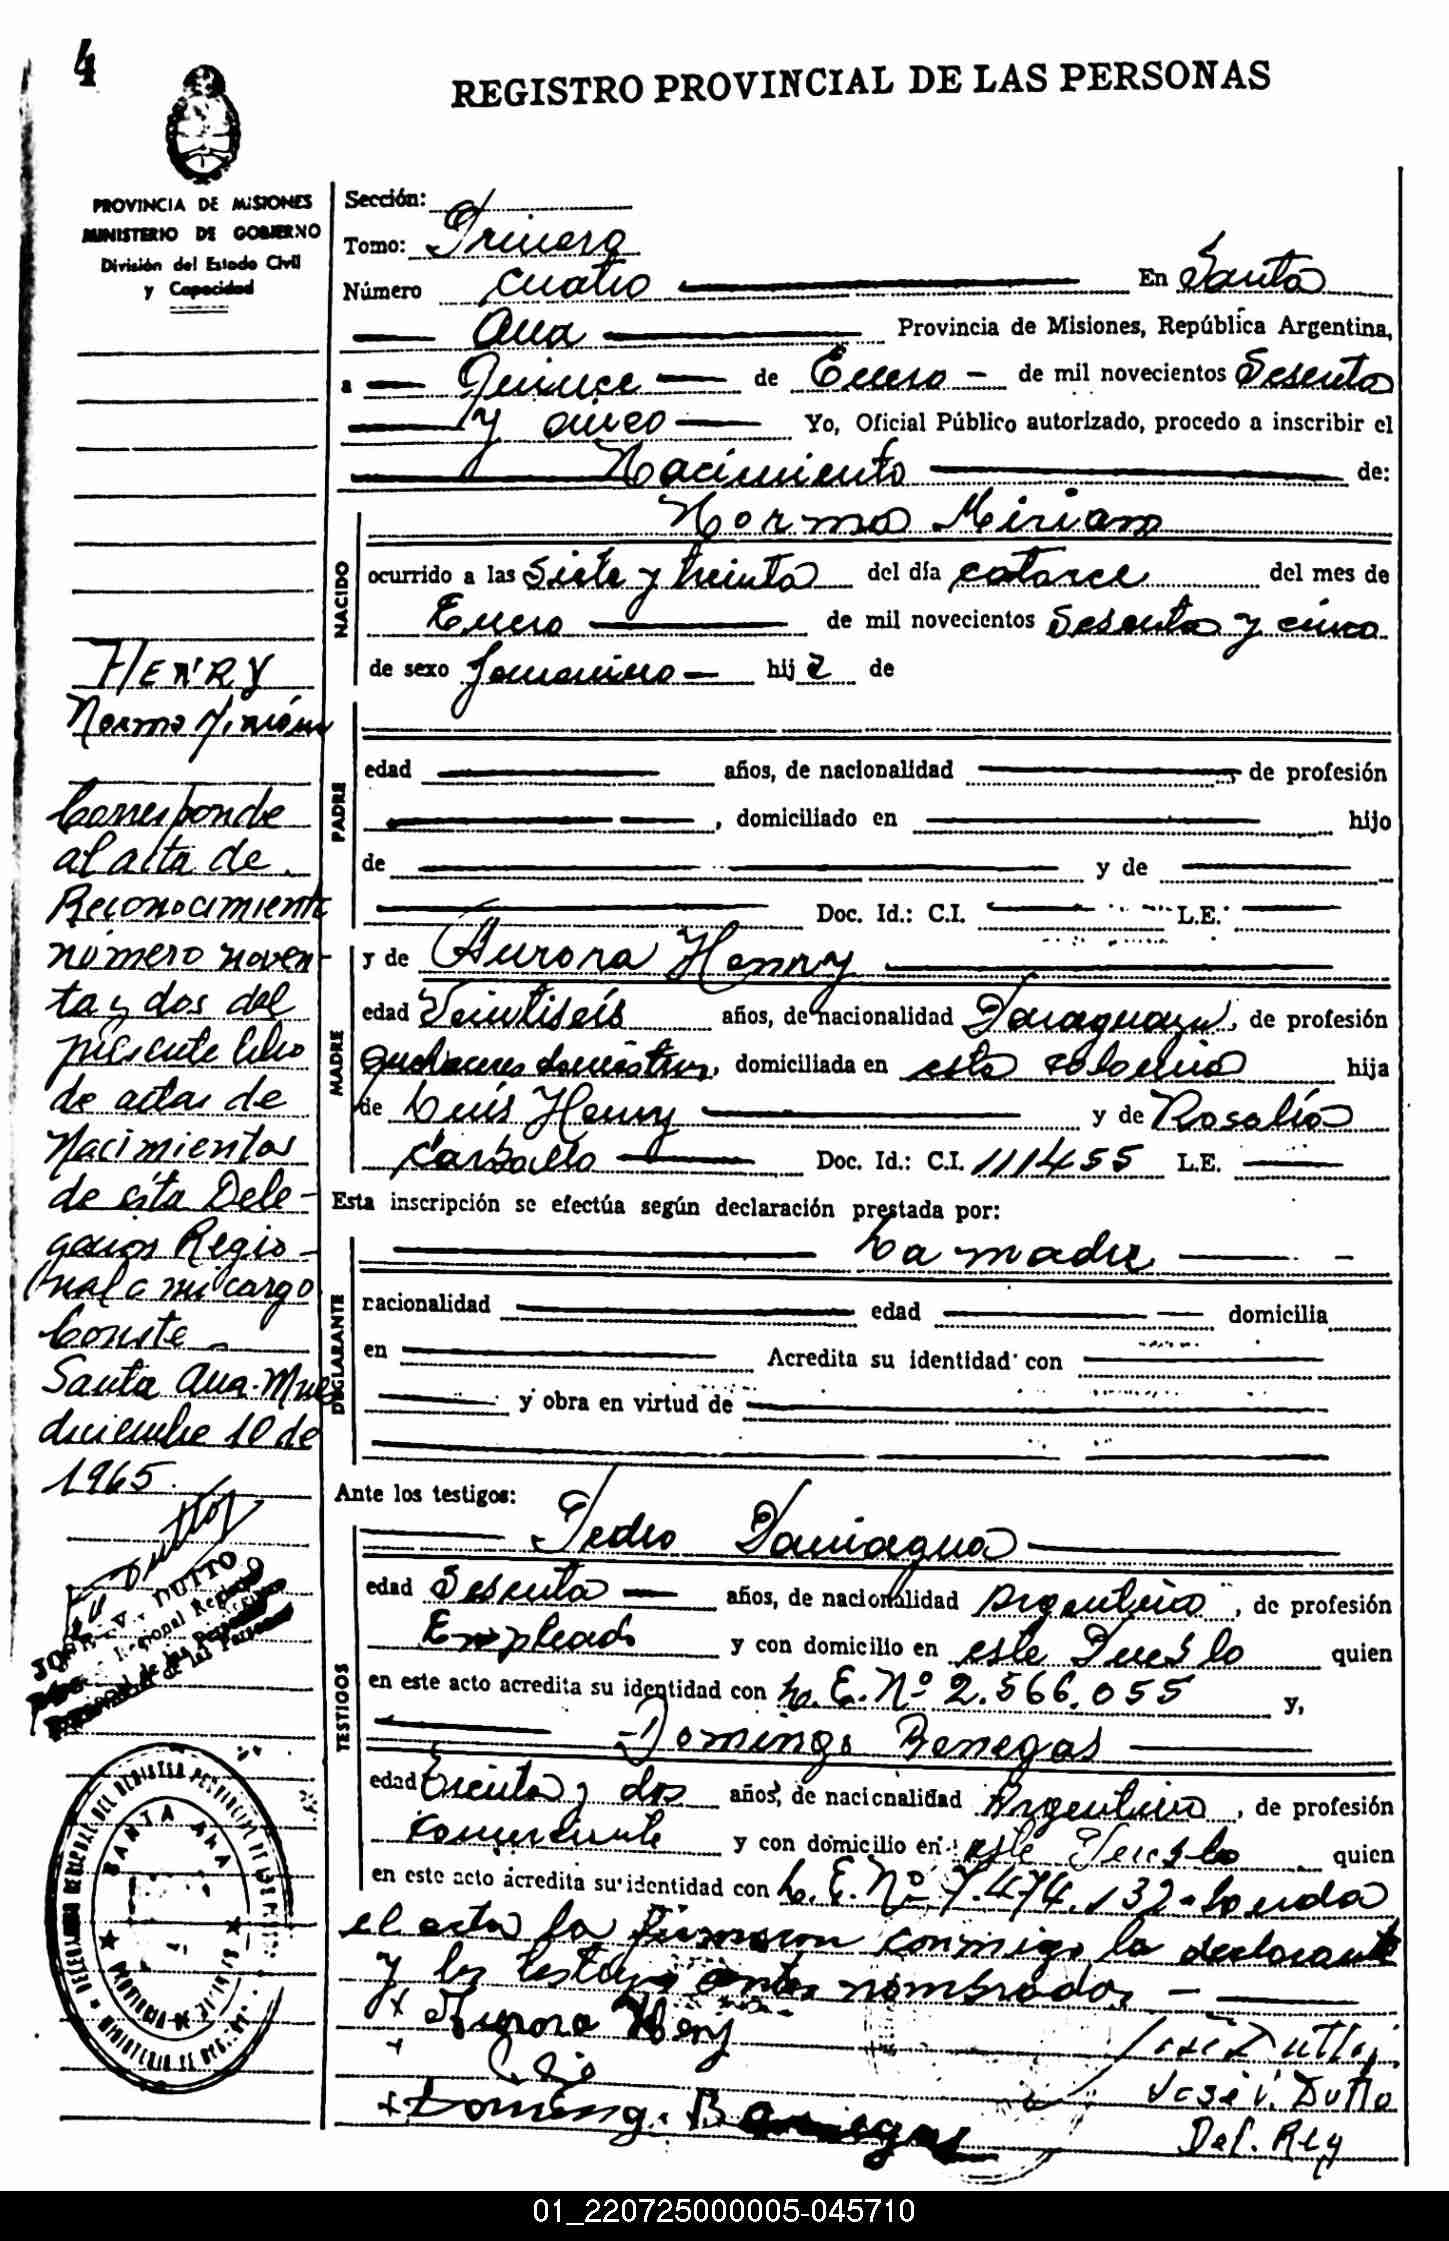 4
REGISTRO PROVINCIAL DE LAS PERSONAS
PROVINCIA DE MISIONES
MINISTERIO DE GOBIERNO
División del Estado Civil
y Capacidad
Sección:
Tomo: Primera
Número cuatro En Santa
Ana Provincia de Misiones, República Argentina,
a Quince de Enero de mil novecientos Sesenta
y cinco Yo, Oficial Público autorizado, procedo a inscribir el
Nacimiento de:
NACIDO
Norma Miriam
ocurrido a las siete y treinta del día catorce del mes de
Enero de mil novecientos Sesenta y cinco
de sexo femenino hij a de
PADRE
edad años, de nacionalidad de profesión
, domiciliado en hijo
de y de
Doc. Id.: C.I. L.E.
MADRE
y de Aurora Henry
edad Veintiseis años, de nacionalidad Paraguaya, de profesión
quehaceres domésticos, domiciliada en esta colonia hija
de Luis Henry y de Rosalía
Carballo Doc. Id.: C.I. 111455 L.E.
Esta inscripción se efectúa según declaración prestada por:
DECLARANTE
La madre
nacionalidad edad domicilia
en Acredita su identidad con
y obra en virtud de
Ante los testigos:
TESTIGOS
Pedro Paniagua
edad Sesenta años, de nacionalidad Argentino, de profesión
Empleado y con domicilio en este Pueblo quien
en este acto acredita su identidad con L.E. Nº 2.566.055 y,
Domingo Benegas
edad treinta y dos años, de nacionalidad Argentino, de profesión
Comerciante y con domicilio en este Pueblo quien
en este acto acredita su identidad con L.E. Nº 7.474.132- Leida
el acta la firmaron conmigo la declarante
y los testigos antes nombrados
x Aurora Henry
x Domingo Benegas
José V. Dutto
Del. Reg
HENRY
Norma Miriam
Corresponde
al acta de
Reconocimiento
número noven-
ta y dos del
presente libro
de actas de
Nacimientos
de ésta Dele-
gación Regio-
nal a mi cargo
Conste
Santa Ana. Mnes
diciembre 10 de
1965.
JOSE V. DUTTO
SANTA ANA
01_220725000005-045710